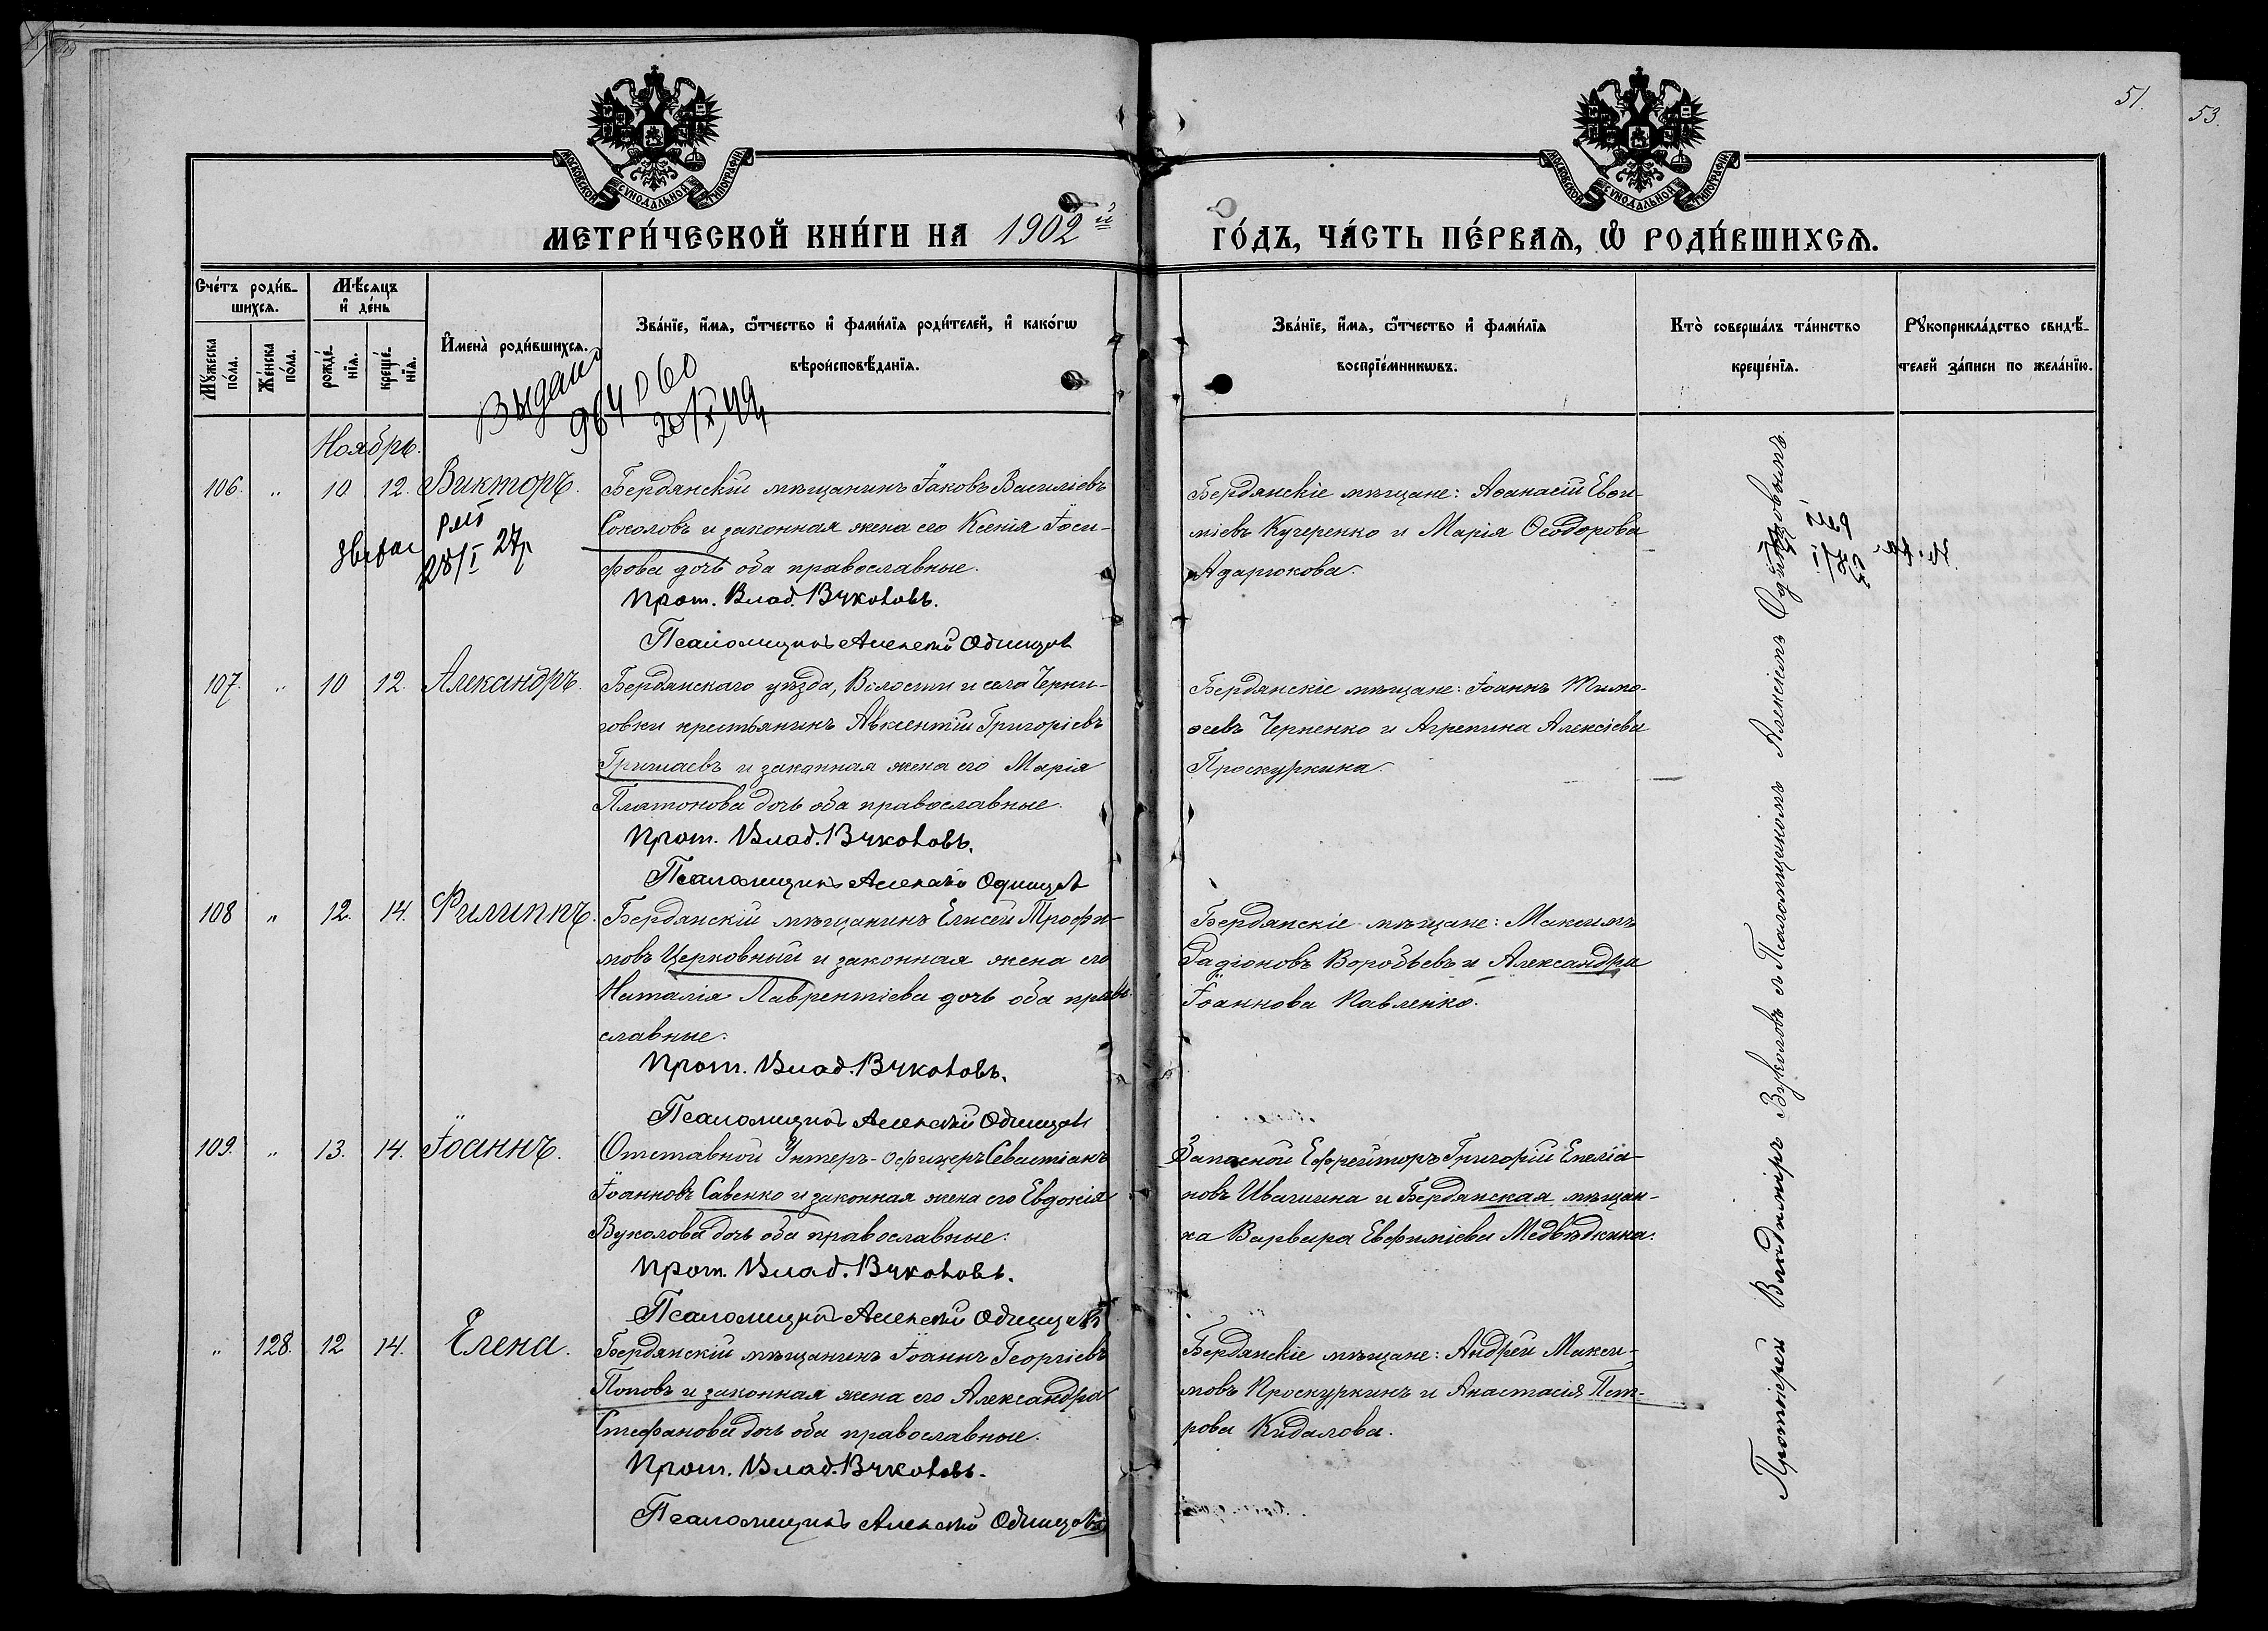 51.
53.
МОСКОВСКОЙ СѴНОДАЛЬНОЙ ТИПОГРАФІИ
МОСКОВСКОЙ СѴНОДАЛЬНОЙ ТИПОГРАФІИ
МЕТРИ́ЧЕСКОЙ КНИ́ГИ НА 1902й
ГО́ДЪ, ЧА́СТЬ ПЕ́РВАѦ, Ѡ҆ РОДИ́ВШИХСѦ.
Сче́тъ роди́в-
шихсѧ.
Мꙋ́жеска по́ла.
Же́нска по́ла.
Мѣ́сѧцъ
и҆ де́нь
рожде́-нїѧ.
креще́-нїѧ.
И҆мена̀ роди́вшихсѧ.
Зва́нїе, и҆́мѧ, ѻ҆́тчество и҆ фами́лїѧ роди́телей, и҆ како́гѡ
вѣроисповѣ́данїѧ.
Зва́нїе, и҆́мѧ, ѻ҆́тчество и҆ фами́лїѧ
воспрїе́мникѡвъ.
Кто̀ соверша́лъ та́инство
креще́нїѧ.
Рꙋкоприкла́дство свидѣ́-
телей за́писи по жела́нїю.
Ноябрь.
106. " 10 12. Викторъ.
Бердянскій мѣщанинъ Іаковъ Василіевъ
Соколовъ и законная жена его Ксенія Іоси-
фова дочь оба православные.
Прот. Влад. Вуколовъ.
Псаломщикъ Алексій Одинцов
Бердянскіе мѣщане: Аѳанасій Евѳи-
міевъ Кучеренко и Марія Ѳеодорова
Адарюкова.
28/I 27р
107. " 10 12. Александръ.
Бердянскаго уѣзда, Волости и села Черни-
говки крестьянинъ Авксентій Григоріевъ
Гришаевъ и законная жена его Марія
Платонова дочь оба православные.
Прот. Влад. Вуколовъ.
Псаломщикъ Алексій Одинцов
Бердянскіе мѣщане: Іоаннъ Тимо-
ѳеевъ Черненко и Агрепина Алексіева
Проскуркина.
108 " 12. 14. Филиппъ.
Бердянскій мѣщанинъ Елисей Трофи-
мовъ Церковный и законная жена его
Наталія Лаврентіева дочь оба право-
славные.
Прот. Влад. Вуколовъ.
Псаломщикъ Алексій Одинцов
Бердянскіе мѣщане: Максимъ
Радіоновъ Воробьевъ и Александра
Іоаннова Павленко.
109. " 13. 14. Іоаннъ.
Отставной Унтеръ-офицеръ Севастіанъ
Іоанновъ Савенко и законная жена его Евдокія
Вуколова дочь оба православные.
Прот. Влад. Вуколовъ.
Псаломщикъ Алексій Одинцовъ
Запасной Ефрейторъ Григорій Емелiа-
новъ Ивашина и Бердянская мѣщан-
ка Варвара Евфиміева Медвѣдкина.
" 128. 12 14. Елена.
Бердянскій мѣщанинъ Іоаннъ Георгіевъ
Поповъ и законная жена его Александра
Стефанова дочь оба православные.
Прот. Влад. Вуколовъ.
Псаломщикъ Алексій Одинцовъ
Бердянскіе мѣщане: Андрей Макси-
мовъ Проскуркинъ и Анастасія Пет-
рова Кидалова.
Протоіерей Владиміръ Вуколовъ съ Псаломщикомъ Алексіемъ Одинцовымъ.